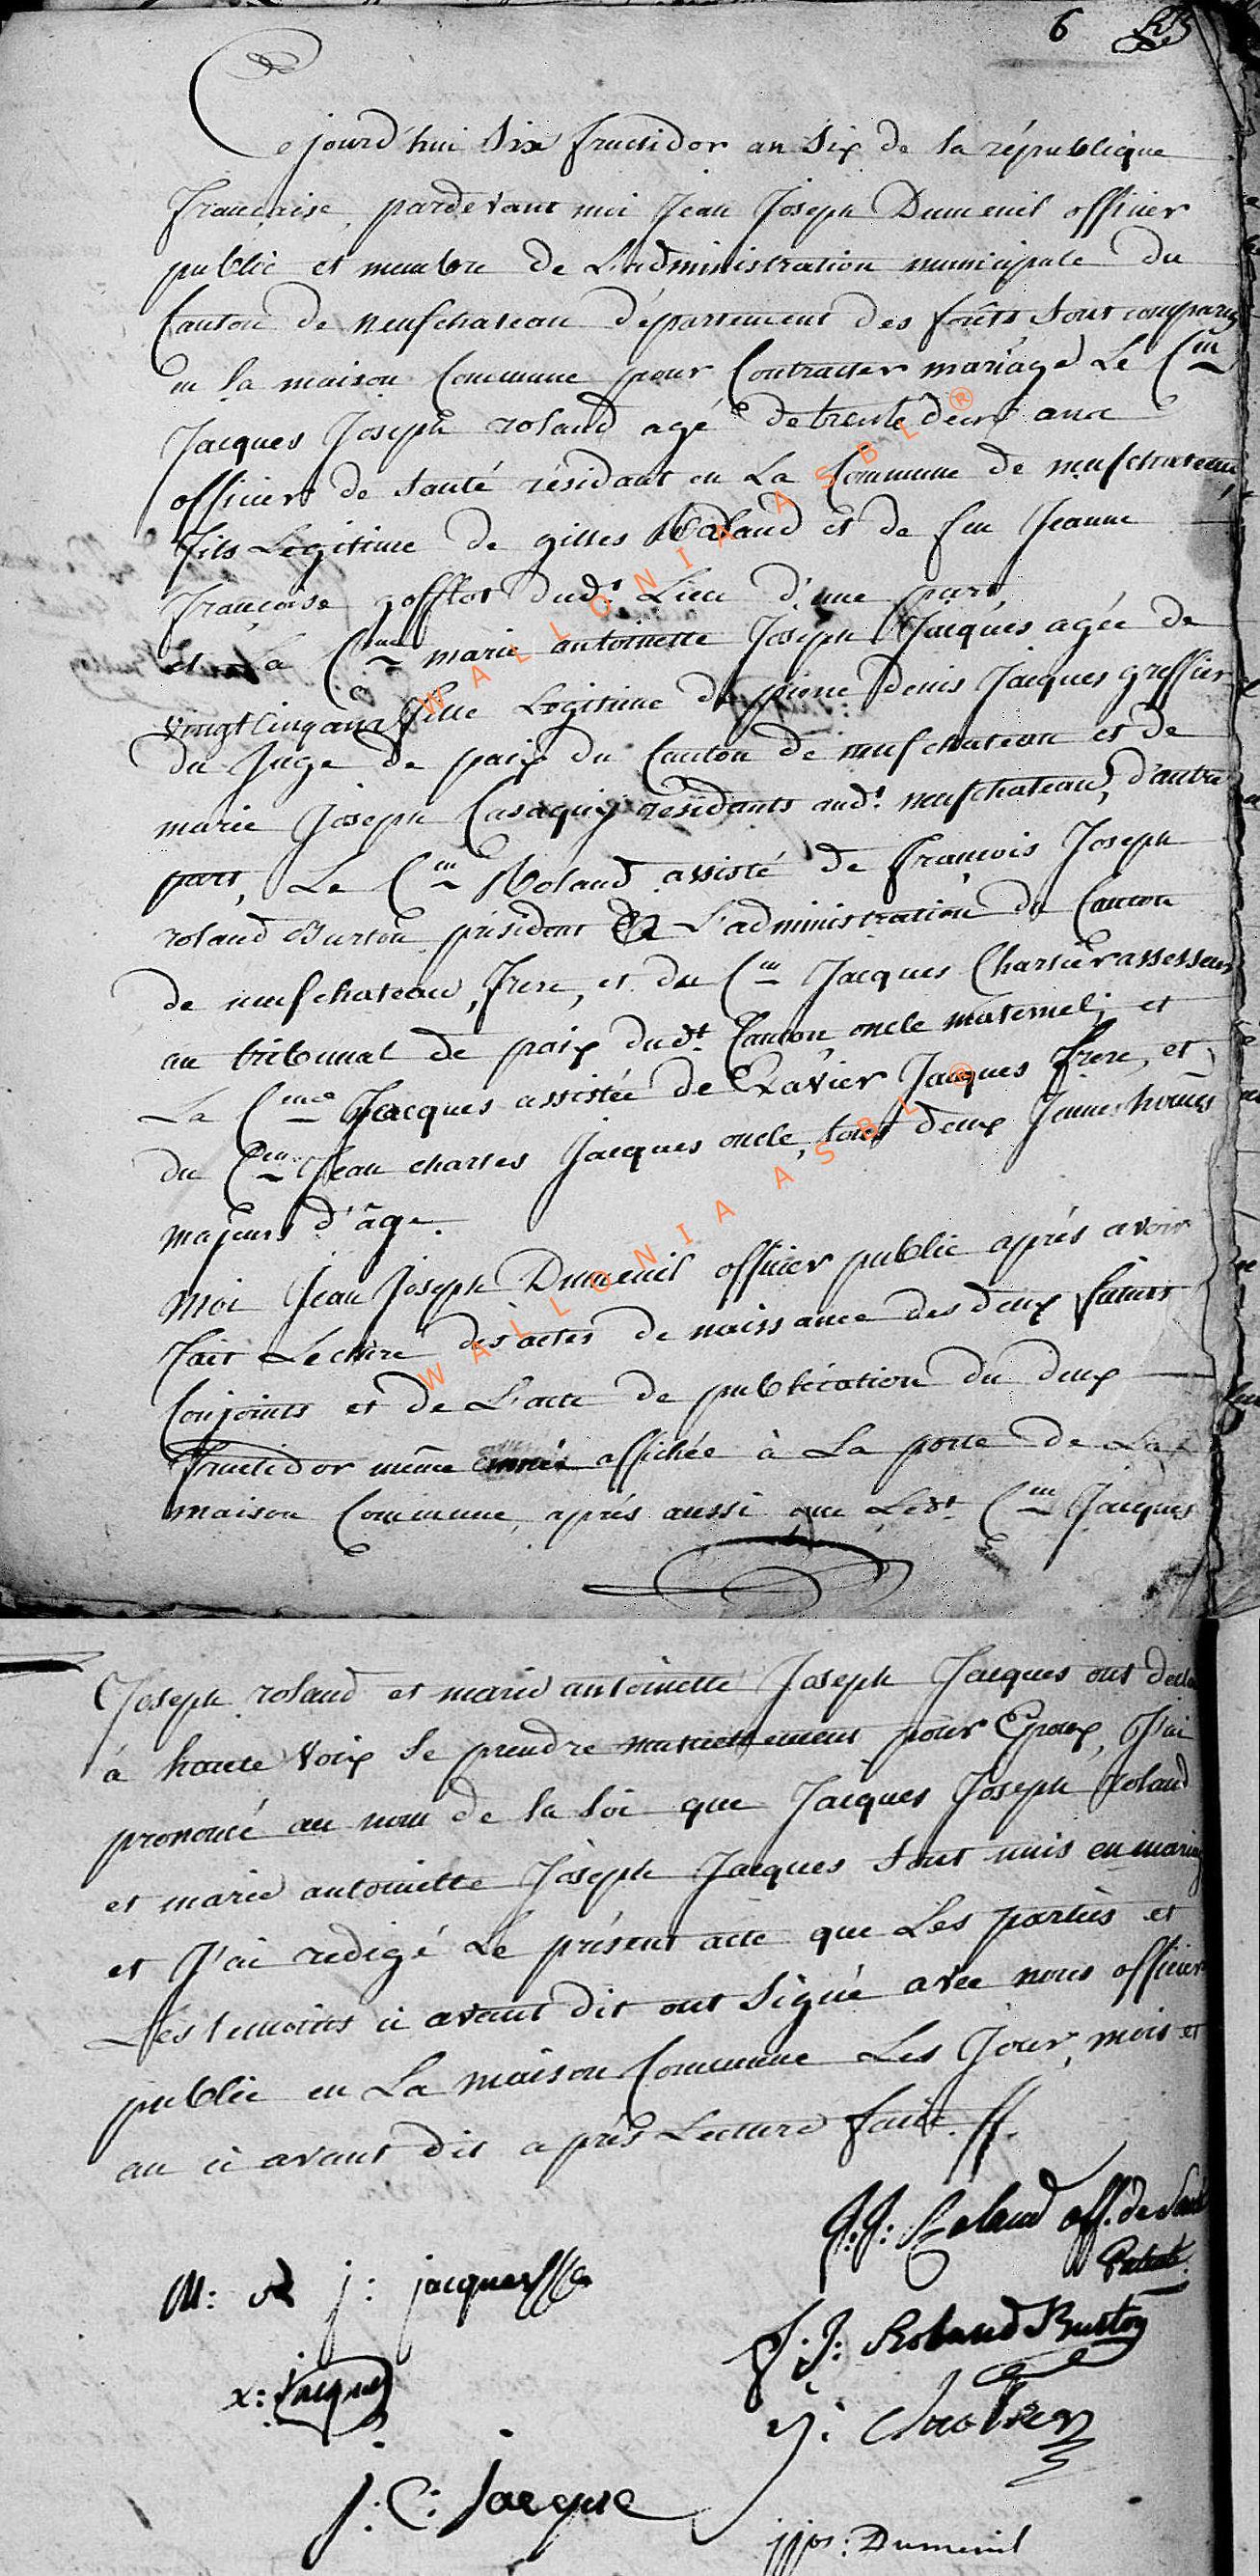 6
Cejourd'hui Six fructidor an Six de la république
francaise, pardevant moi Jean Joseph Dumenil officier
public et membre de L'administration municipale du
Canton de neufchateau département des forêts Sont comparus
en la maison Commune pour Contracter mariage Le C.en
Jacques Joseph roland agé de trente deux ans
officier de Santé résidant en La Commune de neufchateau,
fils Legitime de gilles Roland et de feu Jeanne
françoise gofflot dud.t Lieu d'une part,
et La C.enne marie antoinette Joseph Jacques agée de
vingt Cinq ans fille Legitime de pierre denis Jacques greffier
du Juge de paix du Canton de neufchateau et de
marie Joseph Casaquy résidants aud.t neufchateau, d'autre
part, Le C.en Roland assisté de françois Joseph
roland Burton président de L'administration du Canton
de neufchateau, frere, et du C.en Jacques Charlier assesseur
au tribunal de paix dud.t Canton oncle maternel; et
La C.enne Jacques assistée de Exavier Jacques frere, et
du C.en Jean charles Jacques oncle, tous deux Jeunes homes
majeurs d'âge.
Moi Jean Joseph Dumenil officier public aprés avoir
fait Lecture des actes de naissance des deux futurs
Conjoints et de L'acte de publication du deux
fructidor même année affichée à La porte de La
maison Commune, aprés aussi que Led.t C.en Jacques
Joseph roland et marie antoinette Joseph Jacques ont
à haute Voix Se prendre mutuellement pour Epoux, J'ai
prononcé au nom de la Loi que Jacques Joseph roland
et marie antoinette Joseph Jacques Sont unis en mariage
et J'ai redigé Le présent acte que Les parties et
Les temoins ci avant dit ont Signé avec nous officier
public en La maison Commune Les Jour, mois et
an ci avant dit après Lecture faite.
J.J: Roland off. de Santé
M: a j: jacques
F.J: Roland Burton
x: Jacques
J: Charlier
J: C: Jacque
jjos: Dumenil
WALLONIA ASBL ®
WALLONIA ASBL ®